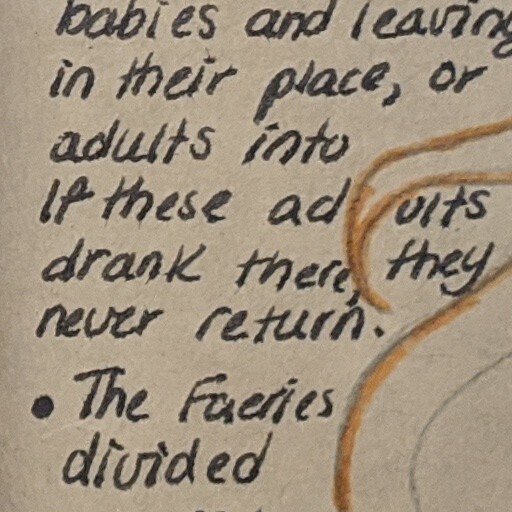 babies and leaving
in their place, or
adults into
If these adults
drank there, they
never return.
• The Faeries
divided